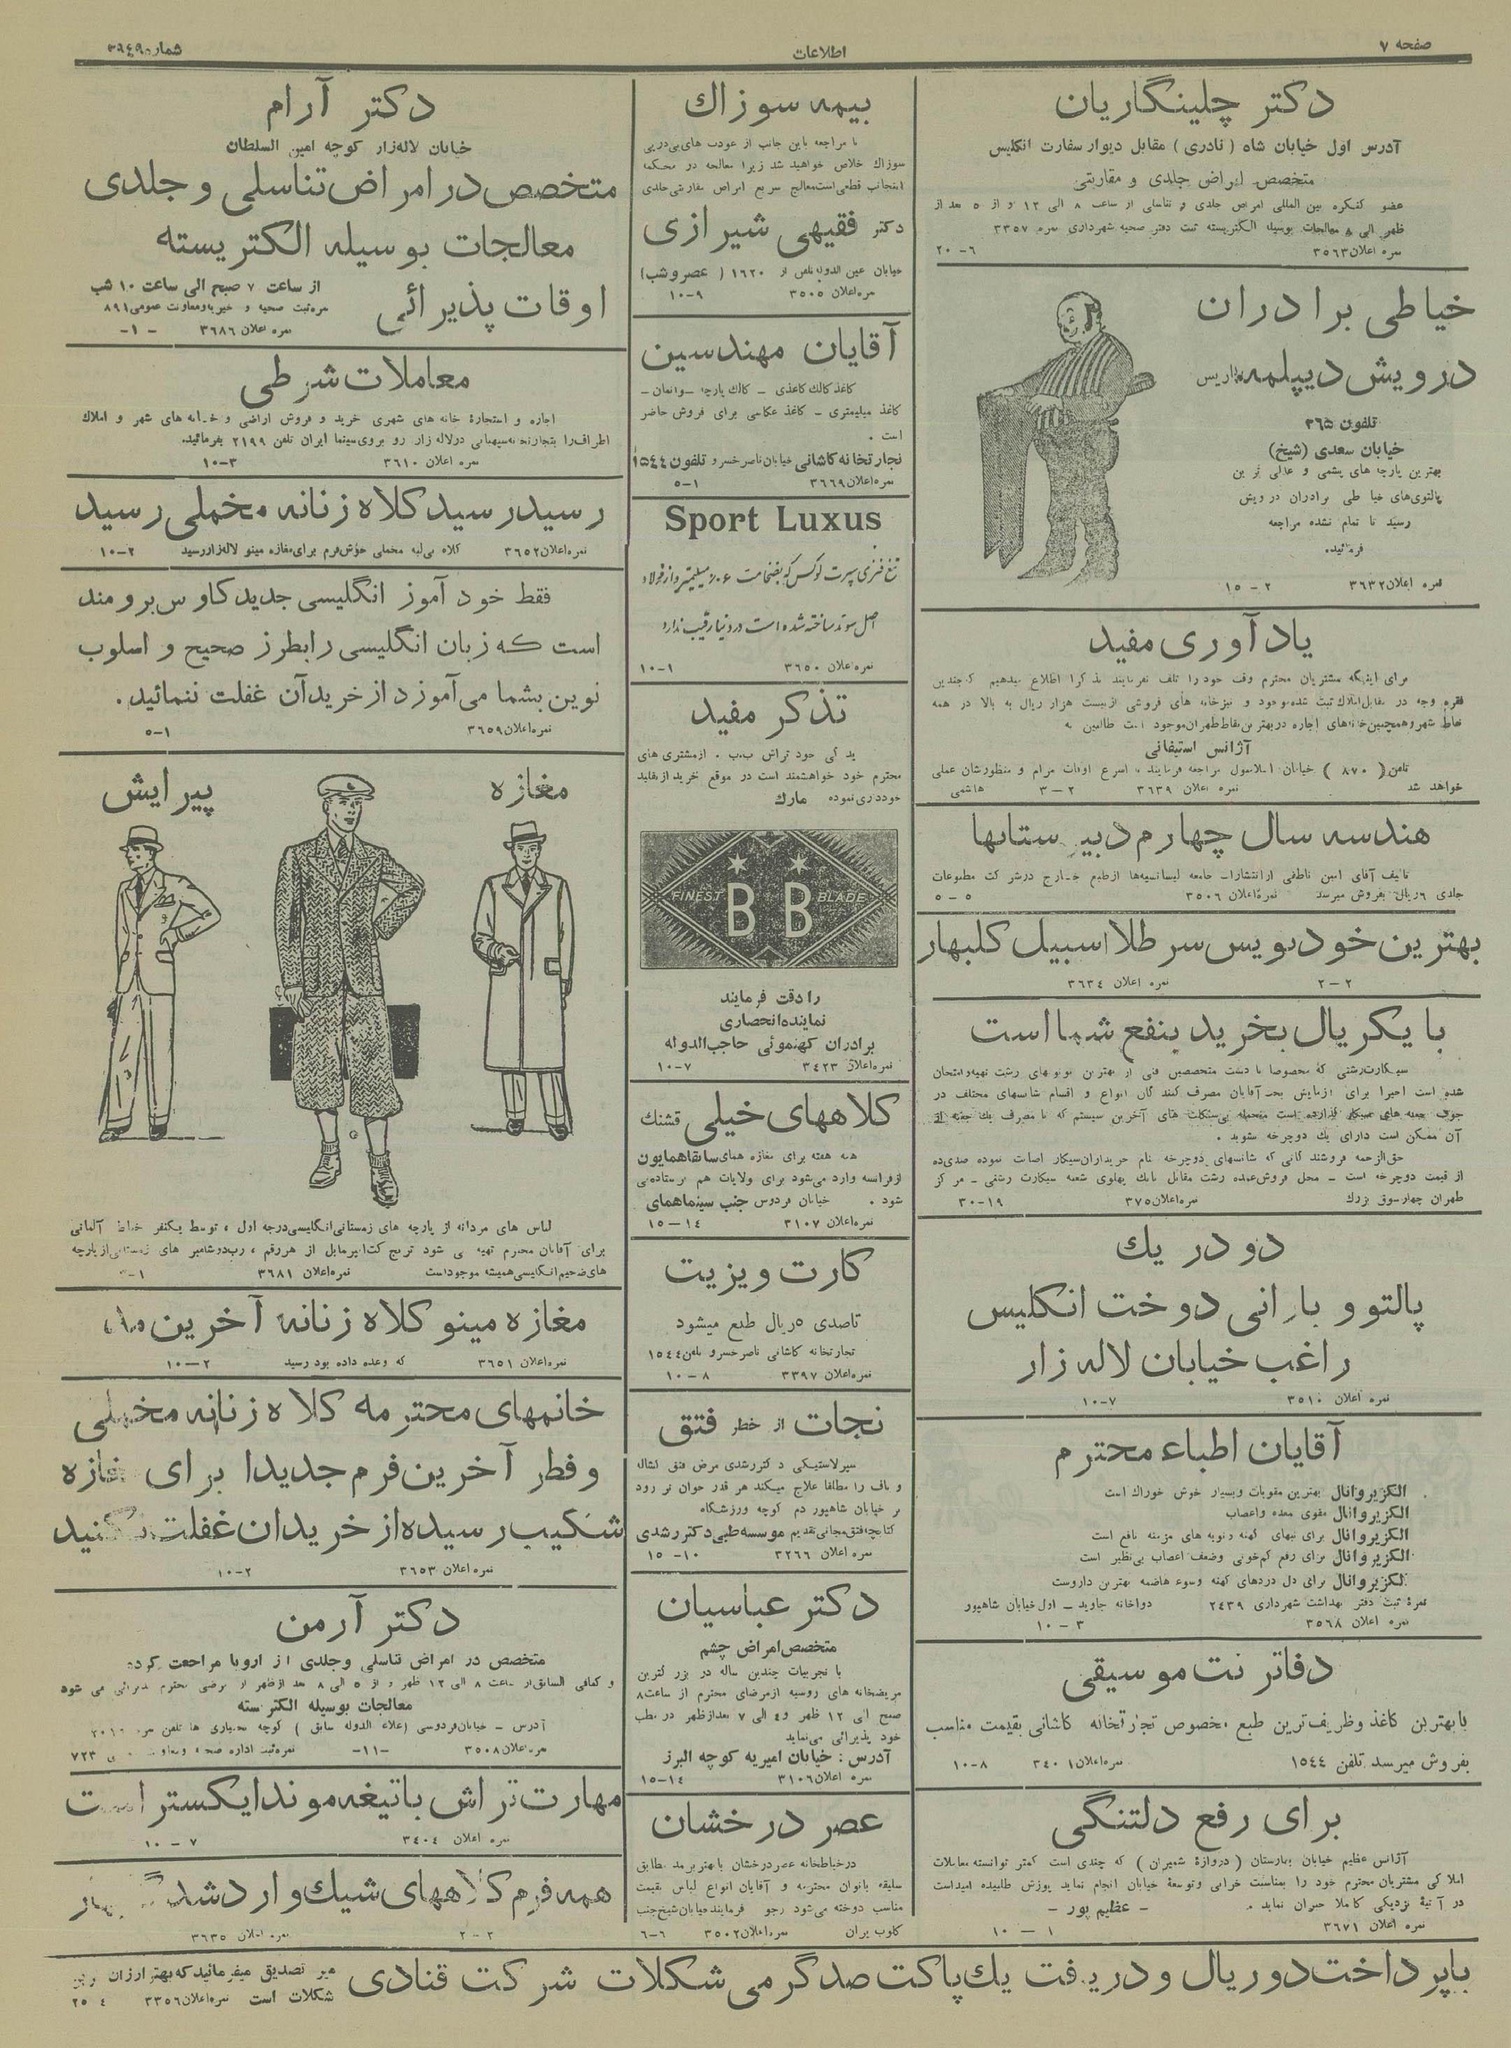 صفحه ۷
اطلاعات
شماره ۳۹۴۹
دکتر چلینگاریان
آدرس اول خیابان شاه (نادری) مقابل دیوار سفارت انگلیس
متخصص امراض جلدی و مقاربتی
عضو کنگره بین المللی امراض جلدی و تناسلی از ساعت ۸ الی ۱۲ و از ۵ بعد از
ظهر الی ۸ معالجات بوسیله الکتریسته ثبت دفتر صحیه شهرداری نمره ۳۳۵۷
نمره اعلان ۳۵۶۳ ۶-۲۰
خیاطی برادران
درویش دیپلمه پاریس
تلفون ۳۶۵
خیابان سعدی (شیخ)
بهترین پارچه های پشمی و عالی ترین
پالتوی‌های خیاطی برادران درویش
رسید تا تمام نشده مراجعه
فرمائید.
نمره اعلان ۳۶۳۲ ۲-۱۵
یادآوری مفید
برای اینکه مشتریان محترم وقت خود را تلف نفرمایند تذکرا اطلاع میدهیم که چندین
فقره وجه در مقابل املاک ثبت شده موجود و نیز خانه های فروشی از بیست هزار ریال به بالا در همه
نقاط شهر و همچنین خانه‌های اجاره در بهترین نقاط طهران موجود است طالبین به
آژانس استیفانی
تلفن (۸۷۰) خیابان اسلامبول مراجعه فرمایند به اسرع اوقات مرام و منظورشان عملی
خواهد شد نمره اعلان ۳۶۳۹ ۲-۳ هاشمی
هندسه سال چهارم دبیرستانها
تالیف آقای امین ناطقی از انتشارات جامعه لیسانسیه‌ها از طبع خارج در شرکت مطبوعات
جلدی ۶ ریال بفروش میرسد نمره اعلان ۳۵۰۶ ۵-۵
بهترین خودنویس سرطلا اسبیل گلبهار
نمره اعلان ۳۶۳۴ ۲-۲
با یکریال بخرید بنفع شما است
سیگارت رشتی که مخصوصا با دست متخصصین فنی از بهترین توتونهای رشت تهیه و امتحان
شده است اخیرا برای آزمایش بخت آقایان مصرف کنندگان انواع و اقسام شانسهای مختلف در
جوف جعبه های سیگار گذارده است منجمله بی‌سیکلت های آخرین سیستم که با مصرف یک جعبه از
آن ممکن است دارای یک دوچرخه شوید.
حق‌الزحمه فروشندگانی که شانسهای دوچرخه بنام خریداران سیگار اصابت نموده صدی ده
از قیمت دوچرخه است - محل فروش عمده رشت مقابل بانک پهلوی شعبه سیگارت رشتی - مرکز
طهران چهارسوق بزرک نمره اعلان ۳۷۵ ۱۹-۳۰
دو در یک
پالتو و بارانی دوخت انگلیس
راغب خیابان لاله زار
نمره اعلان ۳۵۱۰ ۷-۱۰
آقایان اطباء محترم
الکزیر وانال بهترین مقویات و بسیار خوش خوراک است
الکزیر وانال مقوی معده و اعصاب
الکزیر وانال برای تبهای کهنه و نوبه های مزمنه نافع است
الکزیر وانال برای رفع کم‌خونی و ضعف اعصاب بی‌نظیر است
الکزیر وانال برای دل دردهای کهنه و سوء هاضمه بهترین داروست
نمرهٔ ثبت دفتر بهداشت شهرداری ۲۴۳۹ دواخانه جاوید - اول خیابان شاهپور
نمره اعلان ۳۵۶۸ ۳-۱۰
دفاتر نت موسیقی
با بهترین کاغذ و ظریف‌ترین طبع مخصوص تجارتخانه کاشانی بقیمت مناسب
بفروش میرسد تلفن ۱۵۴۴ نمره اعلان ۳۴۰۱ ۸-۱۰
برای رفع دلتنگی
آژانس عظیم خیابان بهارستان (دروازهٔ شمیران) که چندی است کمتر توانسته معاملات
املاکی مشتریان محترم خود را بمناسبت خرابی و توسعهٔ خیابان انجام نماید پوزش طلبیده امیداست
در آتیهٔ نزدیکی کاملا جبران نماید. - عظیم پور -
نمره اعلان ۳۶۷۱ ۱-۱۰
بیمه سوزاک
با مراجعه باین جانب از عودت های پی‌درپی
سوزاک خلاص خواهید شد زیرا معالجه در محکمه
اینجانب قطعی است معالج سریع امراض مقاربتی جلدی
دکتر فقیهی شیرازی
خیابان عین الدوله تلفن از ۱۶۲۰ (عصر و شب)
نمره اعلان ۳۵۰۵ ۹-۱۰
آقایان مهندسین
کاغذ کالک کاغذی - کالک پارچه - واتمان -
کاغذ میلیمتری - کاغذ عکاسی برای فروش حاضر
است.
تجارتخانه کاشانی خیابان ناصرخسرو تلفون ۱۵۴۴
نمره اعلان ۳۶۶۹ ۱-۵
Sport Luxus
تیغ فنری سپرت لوکس که بضخامت ۰/۰۶ میلیمتر و از فولاد
اصل سوئد ساخته شده است در دنیا رقیب ندارد
نمره اعلان ۳۶۵۰ ۱-۱۰
تذکر مفید
یدکی خود تراش ب.ب. از مشتری های
محترم خود خواهشمند است در موقع خرید از تقلید
خودداری نموده مارک
FINEST B B BLADE
را دقت فرمایند
نماینده انحصاری
برادران کهنموئی حاجب‌الدوله
نمره اعلان ۳۴۲۳ ۷-۱۰
کلاههای خیلی قشنگ
همه هفته برای مغازه همای سابقا همایون
از فرانسه وارد می‌شود برای ولایات هم فرستاده می
شود. خیابان فردوس جنب سینما همای
نمره اعلان ۳۱۰۷ ۱۴-۱۵
کارت ویزیت
تا صدی ۵ ریال طبع میشود
تجارتخانه کاشانی ناصرخسرو تلفن ۱۵۴۴
نمره اعلان ۳۳۹۷ ۸-۱۰
نجات از خطر فتق
سیر لاستیکی دکتر رشدی مرض فتق اطفال
و ناف را مطلقا علاج میکند هر قدر جوان تر زود
تر خیابان شاهپور دم کوچه ورزشگاه
کتابچه فتق مجانی تقدیم موسسه طبی دکتر رشدی
نمره اعلان ۳۲۶۶ ۱۰-۱۵
دکتر عباسیان
متخصص امراض چشم
با تجربیات چندین ساله در بزرگترین
مریضخانه های روسیه از مرضای محترم از ساعت ۸
صبح الی ۱۲ ظهر و ۴ الی ۷ بعدازظهر در مطب
خود پذیرائی می‌نماید
آدرس: خیابان امیریه کوچه البرز
نمره اعلان ۳۱۰۶ ۱۴-۱۵
عصر درخشان
در خیاطخانه عصر درخشان با بهترین مد مطابق
سلیقه بانوان محترمه و آقایان انواع لباس بقیمت
مناسب دوخته می‌شود رجوع فرمایند خیابان شیخ جنب
کلوب ایران نمره اعلان ۳۵۰۲ ۶-۶
دکتر آرام
خیابان لاله‌زار کوچه امین السلطان
متخصص در امراض تناسلی و جلدی
معالجات بوسیله الکتریسته
اوقات پذیرائی
از ساعت ۷ صبح الی ساعت ۱۰ شب
نمره ثبت صحیه و خیریه و معاونت عمومی ۸۹۱
نمره اعلان ۳۶۸۶ -۱-
معاملات شرطی
اجاره و استجارهٔ خانه های شهری خرید و فروش اراضی و خانه های شهر و املاک
اطراف را بتجارتخانه سپهبانی در لاله زار رو بروی سینما ایران تلفن ۲۱۹۹ بفرمائید.
نمره اعلان ۳۶۱۰ ۳-۱۰
رسید رسید کلاه زنانه مخملی رسید
نمره اعلان ۳۶۵۲ کلاه بی‌لبه مخملی خوش فرم برای مغازه مینو لاله‌زار رسید ۲-۱۰
فقط خود آموز انگلیسی جدید کاوس برومند
است که زبان انگلیسی را بطرز صحیح و اسلوب
نوین بشما می‌آموزد از خرید آن غفلت ننمائید.
نمره اعلان ۳۶۵۹ ۱-۵
مغازه پیرایش
لباس های مردانه از پارچه های زمستانی انگلیسی درجه اول، توسط یکنفر خیاط آلمانی
برای آقایان محترم تهیه می شود ترنچ کت ایرمایل از هر رقم، رب‌دوشامبر های زمستانی از پارچه
های ضخیم انگلیسی همیشه موجود است نمره اعلان ۳۶۸۱
مغازه مینو کلاه زنانه آخرین مد
نمره اعلان ۳۶۵۱ که وعده داده بود رسید ۲-۱۰
خانمهای محترمه کلاه زنانه مخملی
و فطر آخرین فرم جدیدا برای مغازه
شکیب رسیده از خرید آن غفلت نکنید
نمره اعلان ۳۶۵۳ ۲-۱۰
دکتر آرمن
متخصص در امراض تناسلی و جلدی از اروپا مراجعت کرده
و کمافی السابق از ساعت ۸ الی ۱۲ ظهر و از ۵ الی ۸ بعد از ظهر از مرضی محترم پذیرائی می شود
معالجات بوسیله الکتریسته
آدرس - خیابان فردوسی (علاء الدوله سابق) کوچه بختیاری ها تلفن نمره
نمره اعلان ۳۵۰۸ -۱۱- نمره ثبت اداره صحیه و معاونت ۷۲۳
مهارت تراش با تیغه موند ایکسترا است
نمره اعلان ۳۴۰۴ ۷-۱۰
همه فرم کلاههای شیک وارد شد گلبهار
نمره اعلان ۳۶۳۵ ۲-۲
با پرداخت دو ریال و دریافت یک پاکت صد گرمی شکلات شرکت قنادی مینو تصدیق میفرمائید که بهترین ارزان ترین
شکلات است نمره اعلان ۳۳۵۶ ۴-۲۵